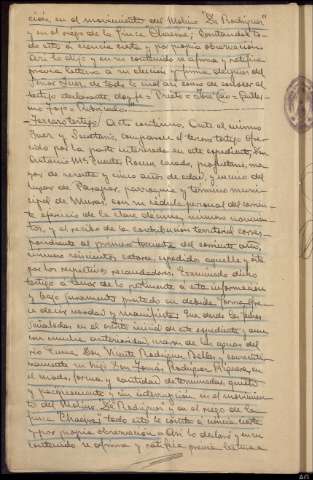 ción en el movimiento del Molino "De Rodrigues"
y en el riego de la finca Chaersa; Constandole to-
do esto á ciencia cierta y por propia observacion.
Así lo dijo y en su contenido se afirma y ratifica
previa lectura a su eleccion y firma despues del
Señor Juez, de todo lo cual así como de conocer al
testigo declarante doy fe = Prieto = José
mo Fojo = Rubricado."
- Tercer testigo: Acto continuo. Ante el mismo
Juez y Secretario, comparece el tercer testigo ofre-
cido por la parte interesada en este expediente, Don
Antonio Mº Fuerte Roma, casado, propietario, ma-
yor de sesenta y cinco años de edad, y vecino del
lugar de parroquia y término muni-
cipal de Muras, con su cédula personal del corrien-
te ejercicio de la clase décima, número
tos, y el recibo de la contribución territorial corres-
pondiente al primer trimestre del corriente año,
número seiscientos catorce, expedidos aquella y éste
por los respectivos recaudadores. Examinado dicho
testigo a tenor de lo pertinente á esta informacion
y bajo juramento prestado en debida forma ofre-
ce decir verdad y manifiesta: Que desde las fechas
señaladas en el escrito inicial de este expediente y aun
con mucha anterioridad, usaron de las aguas del
río Eume Don Vicente Rodriguez Bellas y consecuti-
vamente su hijo Don Tomás Rodriguez en
el modo, forma y cantidad determinados, quieta
y pacíficamente y sin interrupción en el movimien-
to del Molino "De Rodrigues" y en el riego de la
finca "Chaersa"; todo esto le consta a ciencia cierta
y por propia observacion. Así lo declaró y en su
contenido se afirma y ratifica previa lectura a